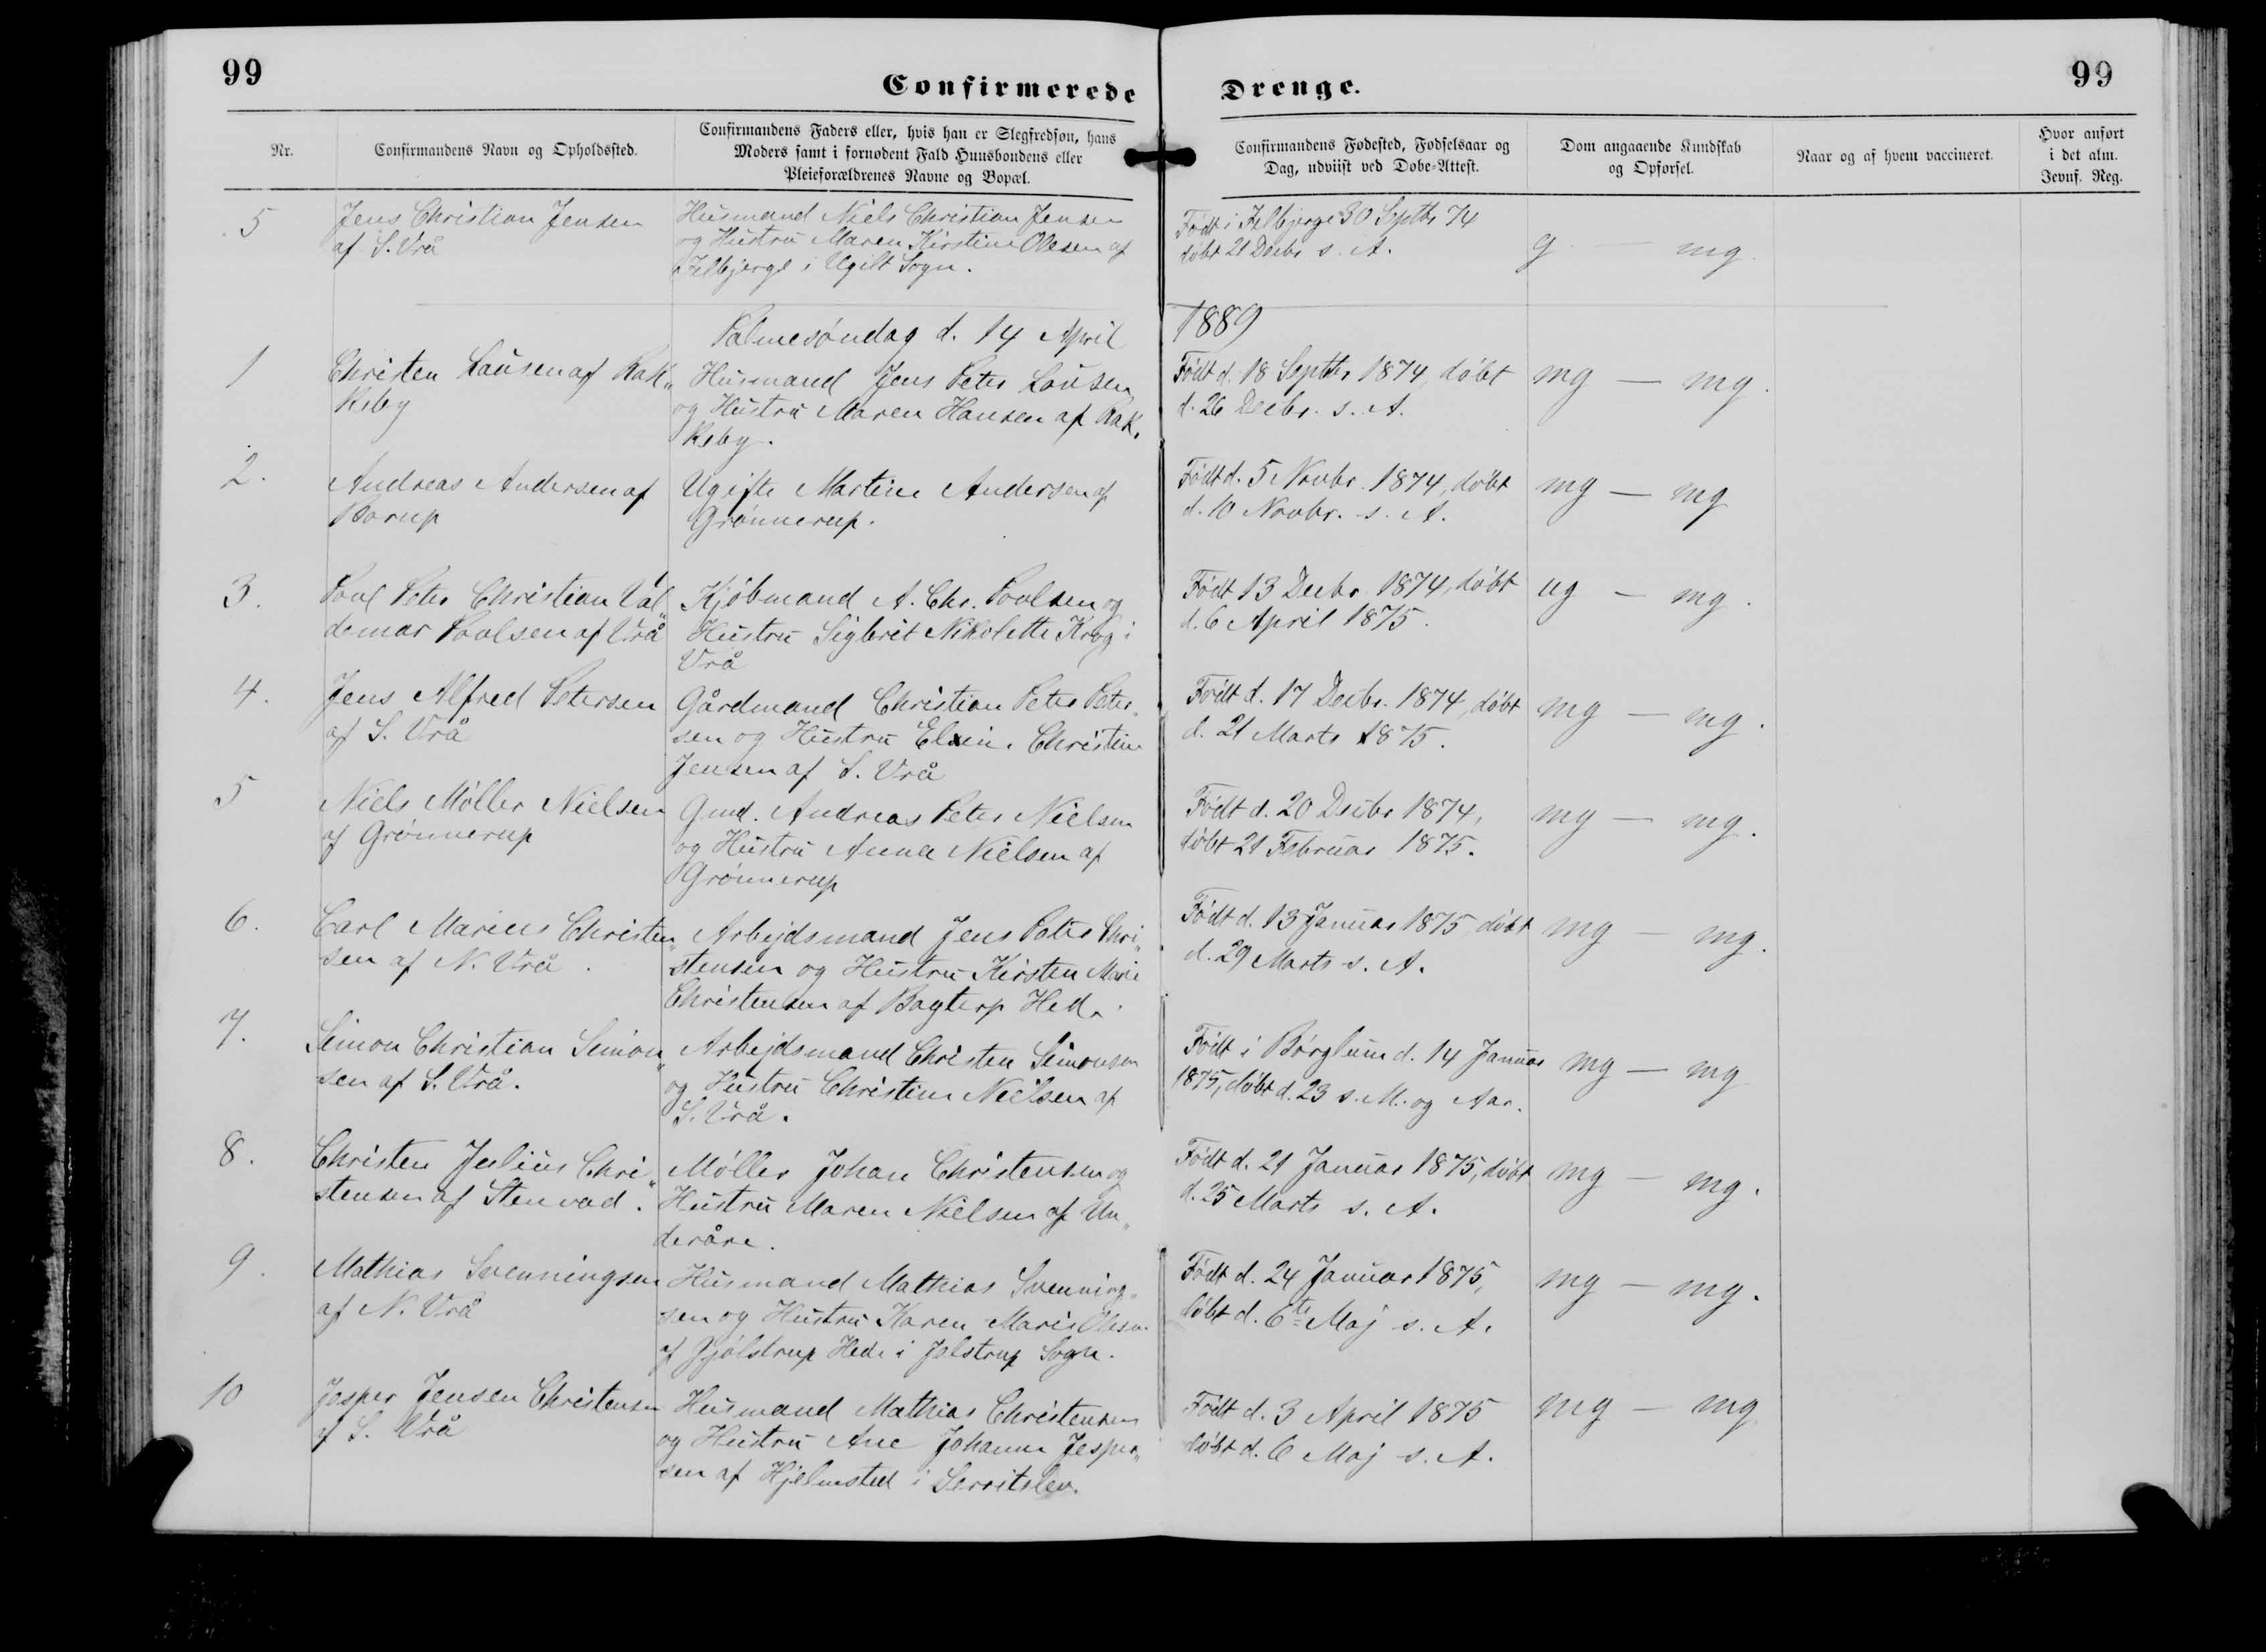 99
Confirmerede Drenge.
99
Nr.
Confirmandens Navn og Opholdssted.
Confirmandens Faders eller, hvis han er Slegfredsøn, hans
Moders samt i fornødent Fald Huusbondens eller
Pleieforældrenes Navne og Bopæl.
Confirmandens Fødested, Fødselsaar og
Dag, udviist ved Døbe-Attest.
Dom angaaende Kundskab
og Opførsel.
Naar og af hvem vaccineret.
Hvor anført
i det alm.
Jevnf. Reg.
5
Jens Christian Jensen
af S. Vrå
Husmand Niels Christian Jensen
og Hustru Maren Kirstine Olesen af
Ilbjerge i Ugilt Sogn.
Født i Ilbjerge 30 Septbr 74
døbt 21 Decbr s. A.
g mg.
Palmesøndag d. 14 April 1889
1
Christen Lausen af Rak„
keby
Husmand Jens Peter Lausen
og Hustru Maren Hansen af Rak„
keby.
Født d. 18 Septbr 1874, døbt
d. 26 Decbr. s. A.
mg — mg.
2.
Andreas Andersen af
Borup
Ugifte Martine Andersen af
Grønnerup.
Født d. 5 Novbr. 1874, døbt
d. 10 Novbr. s. A.
mg — mg
3.
Poul Peter Christian Val„
demar Poulsen af Vrå
Kjøbmand A. Chr. Poulsen og
Hustru Sigbrit Nikolette Krog i
Vrå
Født 13 Decbr 1874, døbt
d. 6 April 1875.
ug — mg.
4.
Jens Alfred Petersen
af S. Vrå
Gårdmand Christian Peter Peter„
sen og Hustru Christine
Jensen af S. Vrå
Født d. 17 Decbr. 1874, døbt
d. 21 Marts 1875.
mg — mg.
5
Niels Møller Nielsen
af Grønnerup
Gmd. Andreas Peter Nielsen
og Hustru Anna Nielsen af
Grønnerup
Født d. 20 Decbr 1874,
døbt 21 Februar 1875.
mg — mg.
6.
Carl Marius Christen„
sen af N. Vrå.
Arbejdsmand Jens Peter Chri„
stensen og Hustru Kirsten Marie
Christensen af Bagterp Hede.
Født d. 13 Januar 1875, døbt
d. 29 Marts s. A.
mg — mg.
7.
Simon Christian Simon„
sen af S. Vrå.
Arbejdsmand Christen Simonsen
og Hustru Christine Nielsen af
S. Vrå.
Født i Børglum d. 14 Januar
1875, døbt d. 23 s. M. og Aar.
mg — mg
8.
Christen Julius Chri„
stensen af Stenvad.
Møller Johan Christensen og
Hustru Maren Nielsen af Un„
deråre.
Født d. 21 Januar 1875, døbt
d. 25 Marts s. A.
mg — mg.
9.
Mathias Svenningsen
af N. Vrå
Husmand Mathias Svenning„
sen og Hustru Karen Marie Olesen
af Gjølstrup Hede i Jelstrup Sogn.
Født d. 24 Januar 1875,
døbt d. 6te Maj s. A.
mg — mg.
10
Jesper Jensen Christensen
af S. Vrå
Husmand Mathias Christensen
og Hustru Ane Johanne Jesper„
sen af Hjelmsted i Serritslev.
Født d. 3 April 1875
døbt d. 6 Maj s. A.
mg — mg